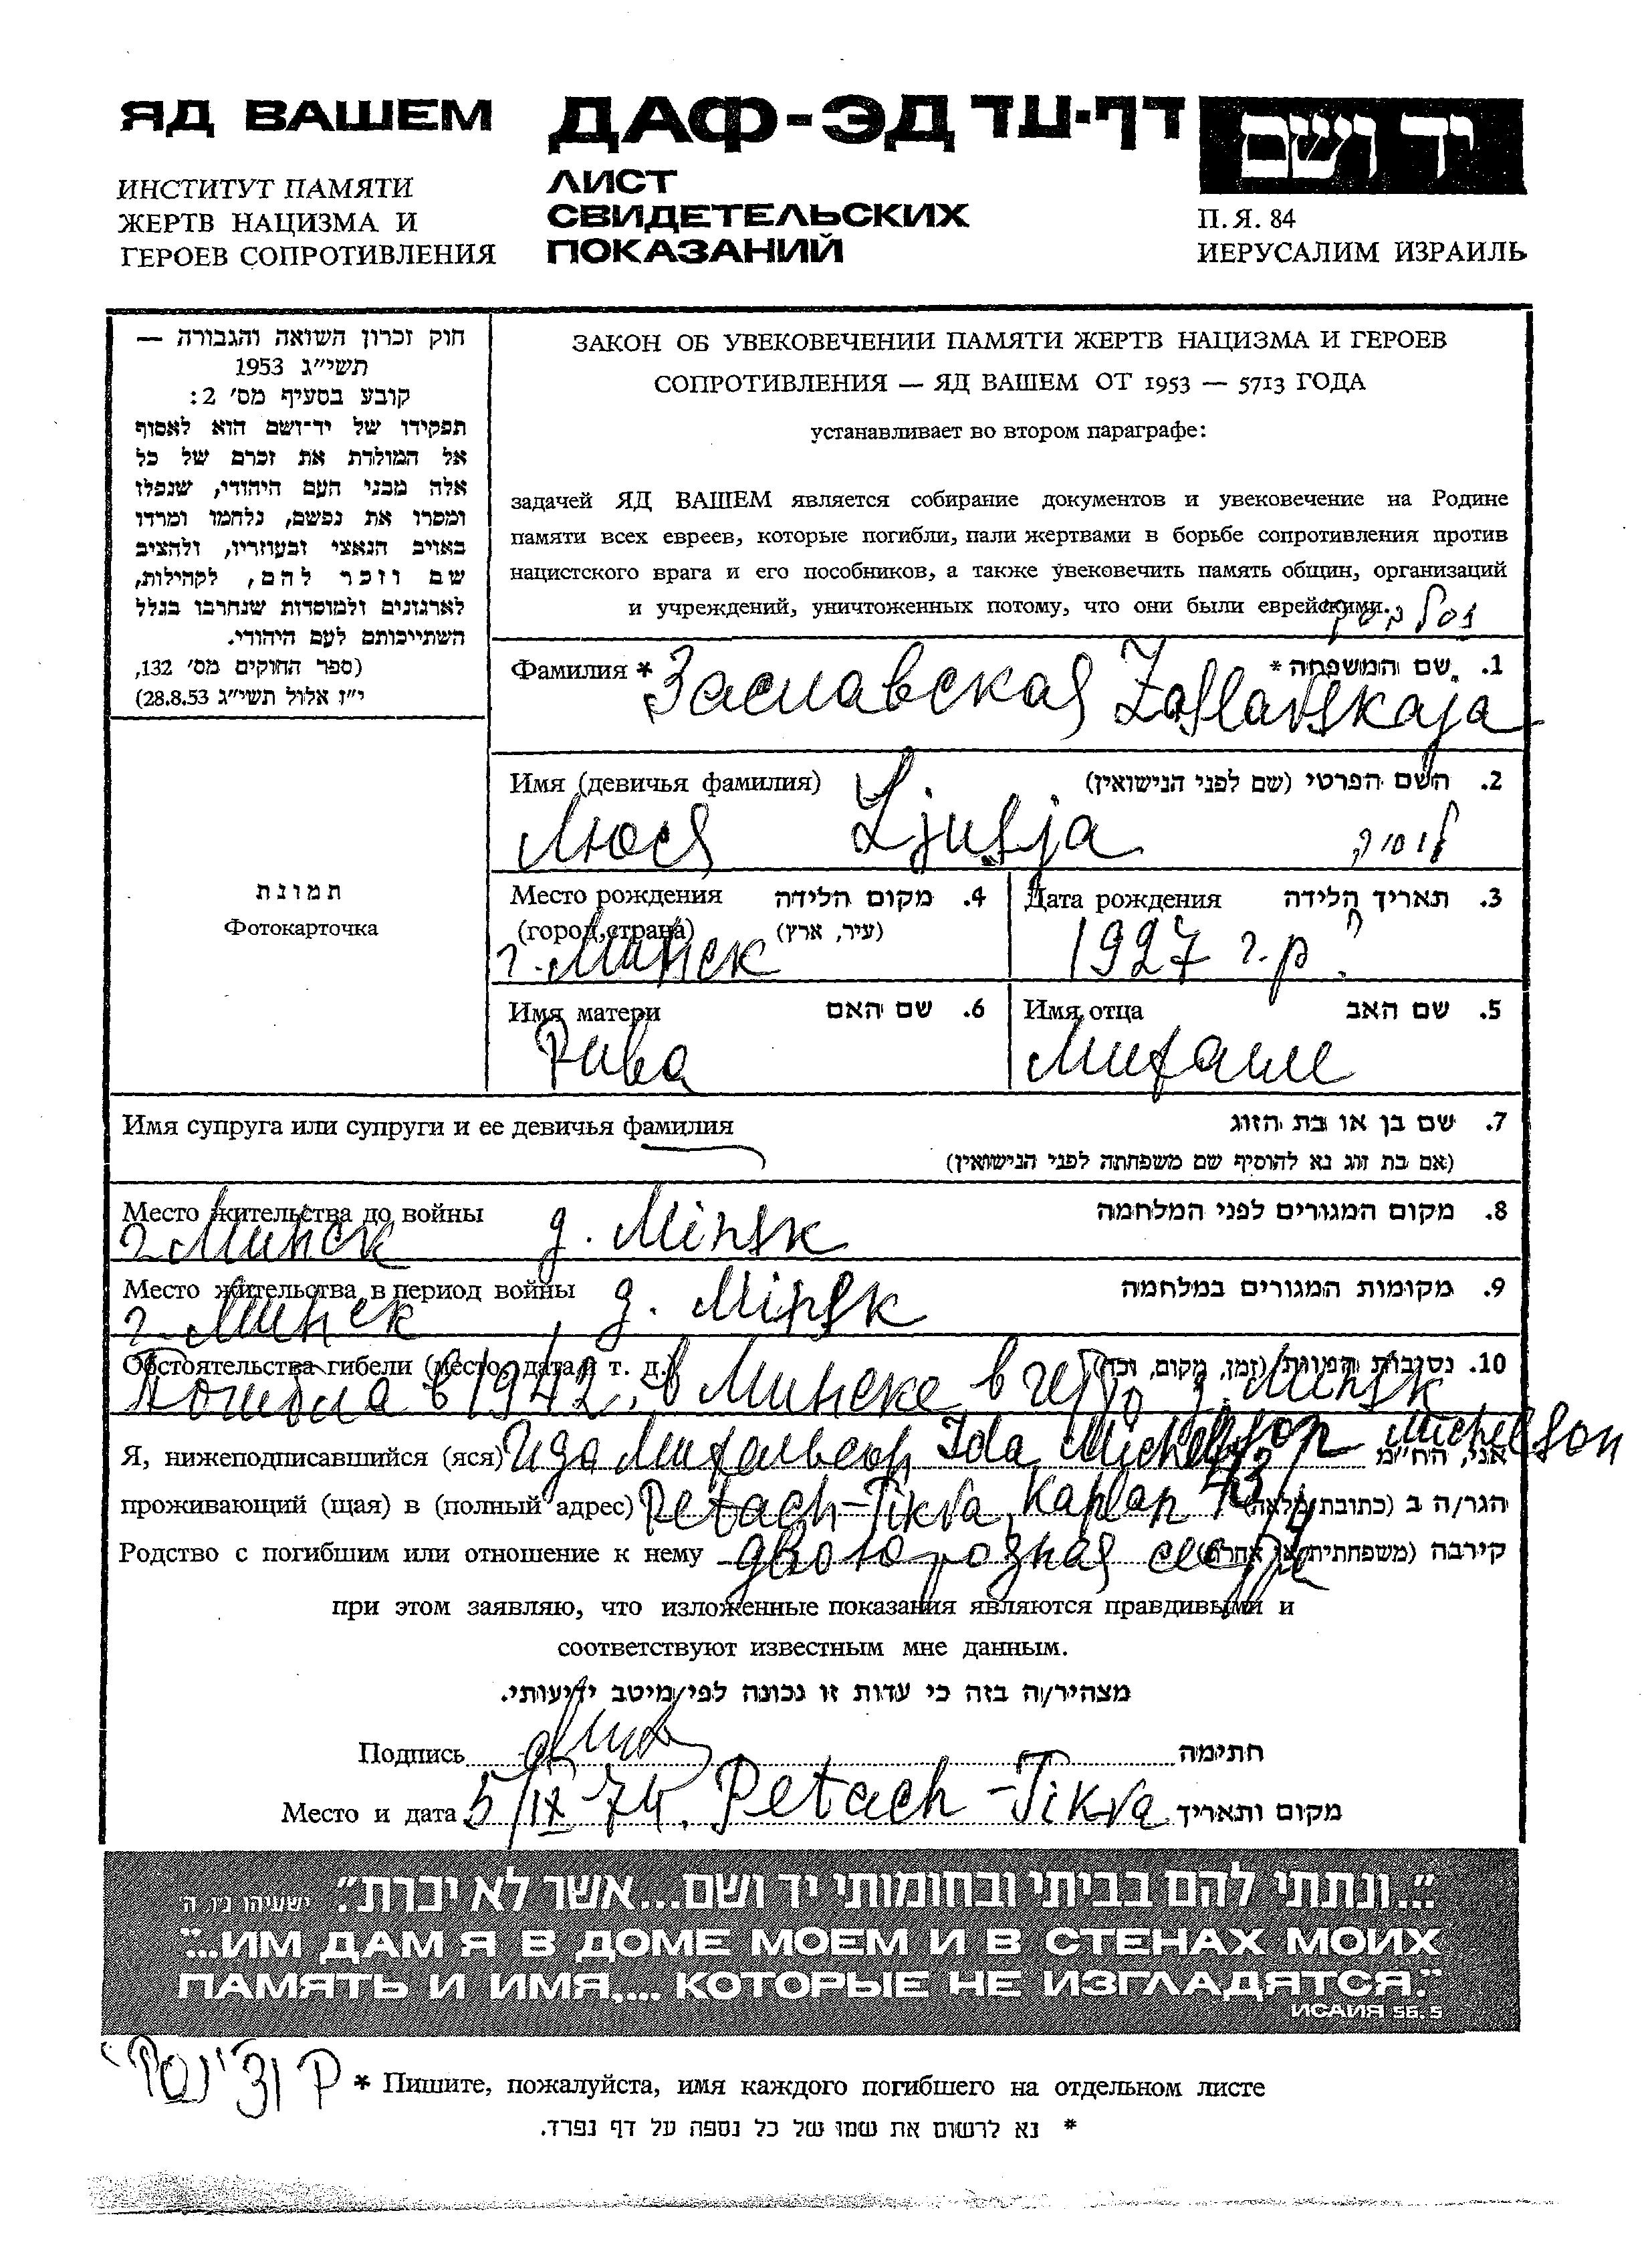 ЯД ВАШЕМ
ИНСТИТУТ ПАМЯТИ
ЖЕРТВ НАЦИЗМА И
ГЕРОЕВ СОПРОТИВЛЕНИЯ
ДАФ-ЭД דף-עד
ЛИСТ
СВИДЕТЕЛЬСКИХ
ПОКАЗАНИЙ
יד ושם
П.Я. 84
ИЕРУСАЛИМ ИЗРАИЛЬ
חוק זכרון השואה והגבורה —
תשי״ג 1953
קובע בסעיף מס׳ 2:
תפקידו של יד־ושם הוא לאסוף
אל המולדת את זכרם של כל
אלה מבני העם היהודי, שנפלו
ומסרו את נפשם, נלחמו ומרדו
באויב הנאצי ובעוזריו, ולהציב
שם וזכר להם, לקהילות,
לארגונים ולמוסדות שנחרבו בגלל
השתייכותם לעם היהודי.
(ספר החוקים מס׳ 132,
י״ז אלול תשי״ג 28.8.53)
תמונת
Фотокарточка
ЗАКОН ОБ УВЕКОВЕЧЕНИИ ПАМЯТИ ЖЕРТВ НАЦИЗМА И ГЕРОЕВ
СОПРОТИВЛЕНИЯ — ЯД ВАШЕМ ОТ 1953 — 5713 ГОДА
устанавливает во втором параграфе:
задачей ЯД ВАШЕМ является собирание документов и увековечение на Родине
памяти всех евреев, которые погибли, пали жертвами в борьбе сопротивления против
нацистского врага и его пособников, а также увековечить память общин, организаций
и учреждений, уничтоженных потому, что они были еврейскими.
Фамилия * 1. שם המשפחה *
Заславская Zaslavskaja
Имя (девичья фамилия) 2. השם הפרטי (שם לפני הנישואין)
Люся Ljusja לוסיה
Место рождения 4. מקום הלידה
(город, страна) (עיר, ארץ)
г. Минск
Дата рождения 3. תאריך הלידה
1927 г.р ?
Имя матери 6. שם האם
Рива
Имя отца 5. שם האב
Михаил
Имя супруга или супруги и ее девичья фамилия 7. שם בן או בת הזוג
(אם בת זוג נא להוסיף שם משפחתה לפני הנישואין)
Место жительства до войны 8. מקום המגורים לפני המלחמה
г. Минск g. Minsk
Место жительства в период войны 9. מקומות המגורים במלחמה
г. Минск g. Minsk
Обстоятельства гибели (место, дата и т. д.) 10. נסיבות המוות (זמן, מקום, וכו׳)
Погибла в 1942 г. в Минске в гетто g. Minsk
Я, нижеподписавшийся (яся) Ида Михельсон Ida Michelson Michelson אני, הח״מ
проживающий (щая) в (полный адрес) Petach-Tikva, Kaplan הגר/ה ב (כתובת מלאה)
Родство с погибшим или отношение к нему двоюродная сестра קירבה (משפחתית או אחרת)
при этом заявляю, что изложенные показания являются правдивыми и
соответствуют известным мне данным.
מצהיר/ה בזה כי עדות זו נכונה לפי מיטב ידיעותי.
Подпись חתימה
Место и дата 5/IX 74. Petach-Tikva מקום ותאריך
"...ונתתי להם בביתי ובחומותי יד ושם...אשר לא יכרת". ישעיהו נ״ו, ה׳
"...ИМ ДАМ Я В ДОМЕ МОЕМ И В СТЕНАХ МОИХ
ПАМЯТЬ И ИМЯ,... КОТОРЫЕ НЕ ИЗГЛАДЯТСЯ."
ИСАИЯ 56. 5
* Пишите, пожалуйста, имя каждого погибшего на отдельном листе
* נא לרשום את שמו של כל נספה על דף נפרד.